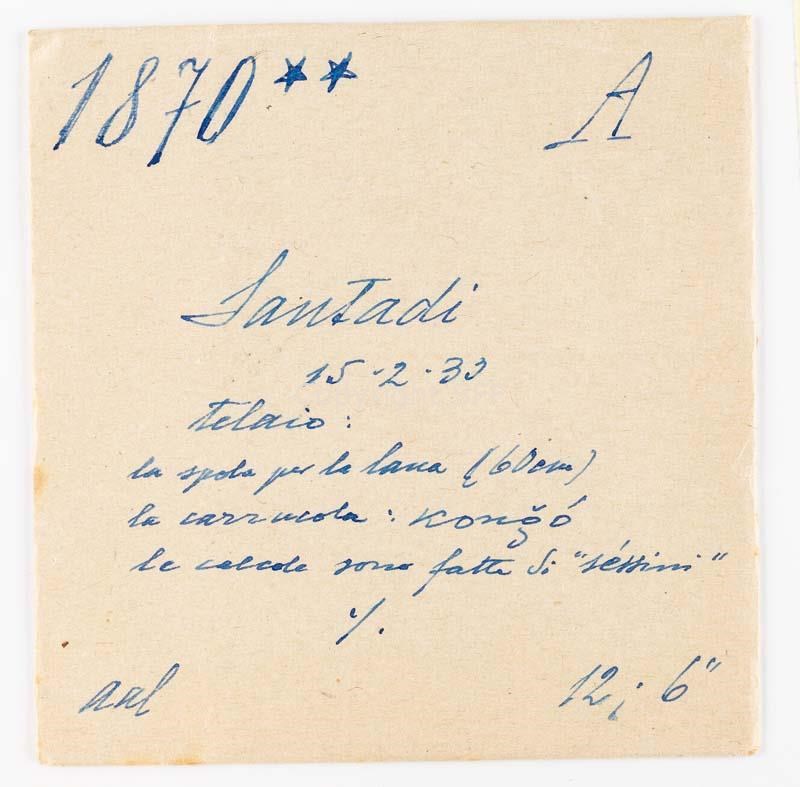 1870** A
Santadi
15-2-33
telaio:
la spola per la lana (60cm)
la carrucola: konǧó
le calcole sono fatte di "séssini"
./.
aal
12; 6"